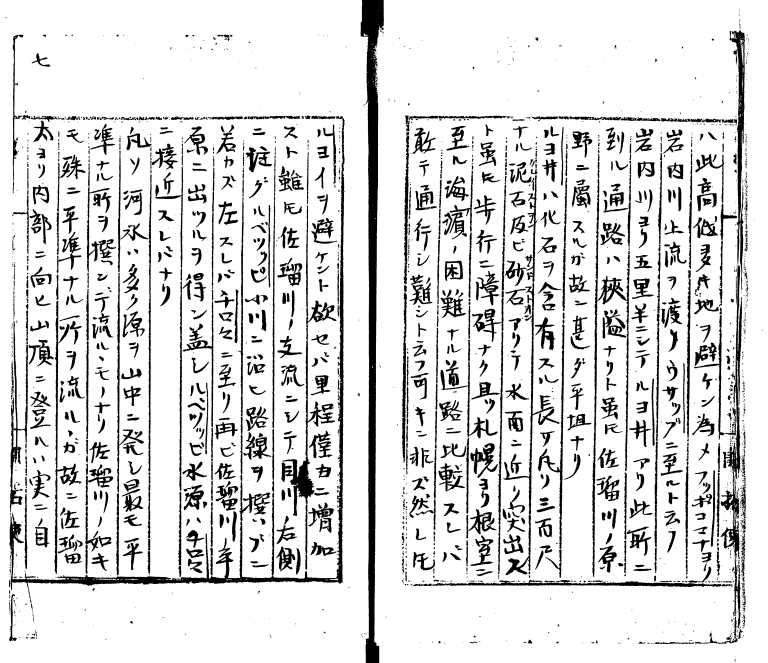 ハ此高低多キ地ヲ避ケン為メフッポコマナヨリ
岩内川上流ヲ渡リウサップニ至ルト云フ
岩内川ヨリ五里半ニシテルヨ井アリ此所ニ
到ル通路ハ狹隘ナリト虽𪜈佐瑠川ノ原
野ニ屬スルガ故ニ甚ダ平坦ナリ
ルヨ井ハ化石ヲ含有スル長ケ凡ソ三百尺
ナル泥石及ビ砂石アリテ水面ニ近ク突出ス
サンドストオン
ト虽𪜈歩行ニ障碍ナク且ツ札幌ヨリ根室ニ
至ル海濱ノ困難ナル道路ニ比較スレバ
敢テ通行シ難シト云フ可キニ非ズ然レ𪜈
開拓使
七
ルヨイヲ避ケント欲セバ里程僅カニ増加
スト雖𪜈佐瑠川ノ支流ニシテ同川ノ右側
ニ注グルベツッピ小川ニ沿ヒ路線ヲ撰ブニ
若カズ左スレバチロロニ至リ再ビ佐瑠川平
原ニ出ツルヲ得ン盖シルベツッピ水源ハチロロ
ニ接近スレバナリ
凡ソ河水ハ多ク源ヲ山中ニ発シ最モ平
準ナル所ヲ撰ンデ流ルヽモノナリ佐瑠川ノ如キ
モ殊ニ平準ナル所ヲ流ルヽガ故ニ佐瑠
太ヨリ内部ニ向ヒ山頂ニ登ルハ実ニ自
開拓使